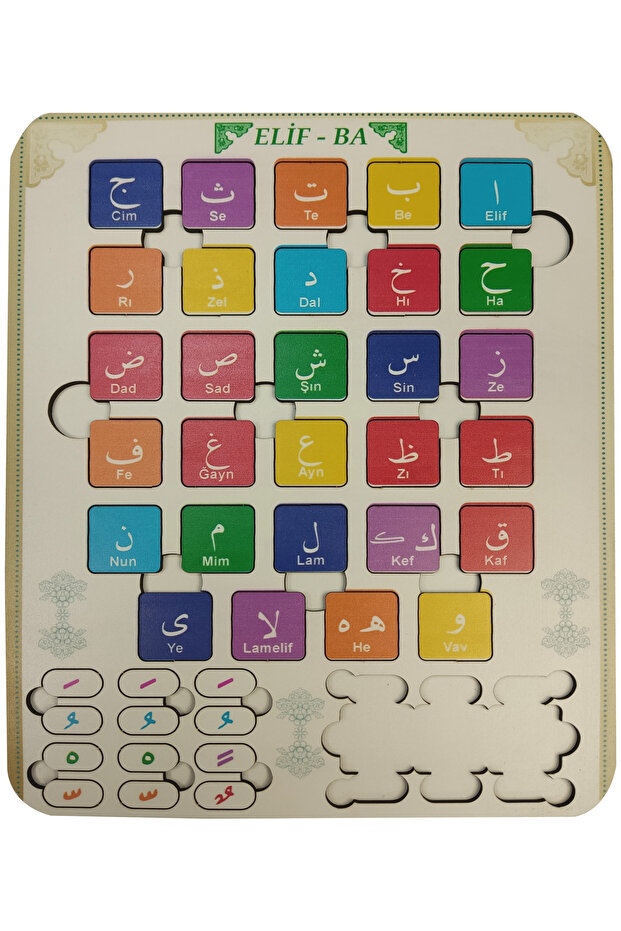 ELİF - BA
ا ب ت ث ج
Cim Se Te Be Elif
ح خ د ذ ر
Rı Zel Dal Hı Ha
ز س ش ص ض
Dad Sad Şın Sin Ze
ط ظ ع غ ف
Fe Ğayn Ayn Zı Tı
ق ك ک ل م ن
Nun Mim Lam Kef Kaf
و ه ه لا ى
Ye Lamelif He Vav